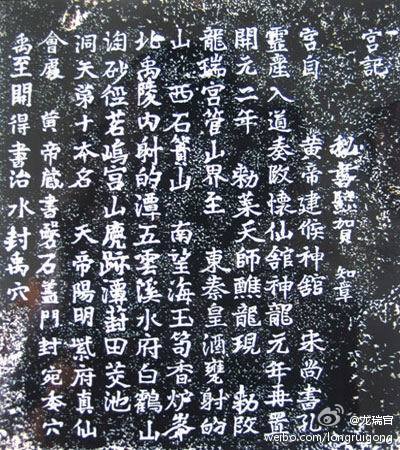 宮記
秘書監賀 知章
宮自 黃帝建候神舘 宋尚書孔
靈產入道奏改懷仙舘神龍元年再置
開元二年 勑葉天師醮龍現 勑改
龍瑞宮管山界至 東秦皇酒甕射的
山 西石簣山 南望海玉笥香炉峯
北禹陵内射的潭五雲溪水府白鶴山
淘砂徑茗塢宮山鹿跡潭葑田茭池
洞天第十本名 天帝陽明紫府真仙
會處 黃帝藏書磐石盖門封宛委穴
禹至開得書治水封禹穴
@龙瑞宫
weibo.com/longruigong